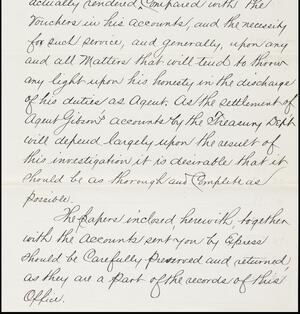 actually rendered compared with the
Vouchers in his accounts, and the necessity
for such service, and generally, upon any
and all Matters that will tend to throw
any light upon his honesty in the discharge
of his duties as Agent. As the settlement of
Agent Gibson's accounts by the Treasury Dept
will depend largely upon the result of
this investigation it is desirable that it
should be as thorough and Complete as
possible.
The papers inclosed, herewith, together
with the Accounts sent you by Express
should be Carefully preserved and returned,
as they are a part of the records of this
Office.